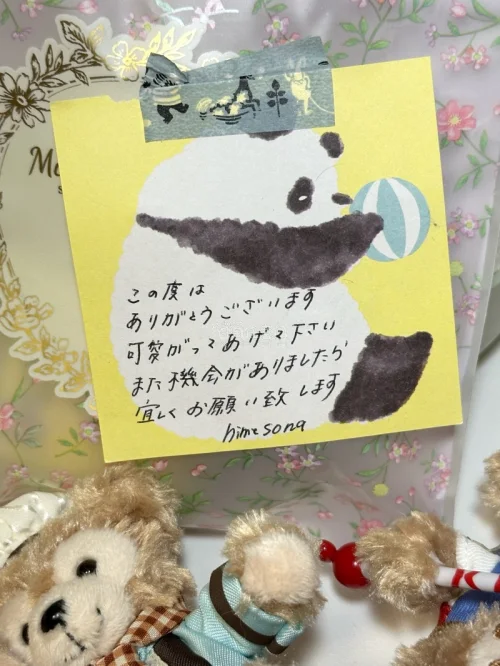 この度は
ありがとうございます
可愛がってあげて下さい
また機会がありましたら
宜しくお願い致します
himesona